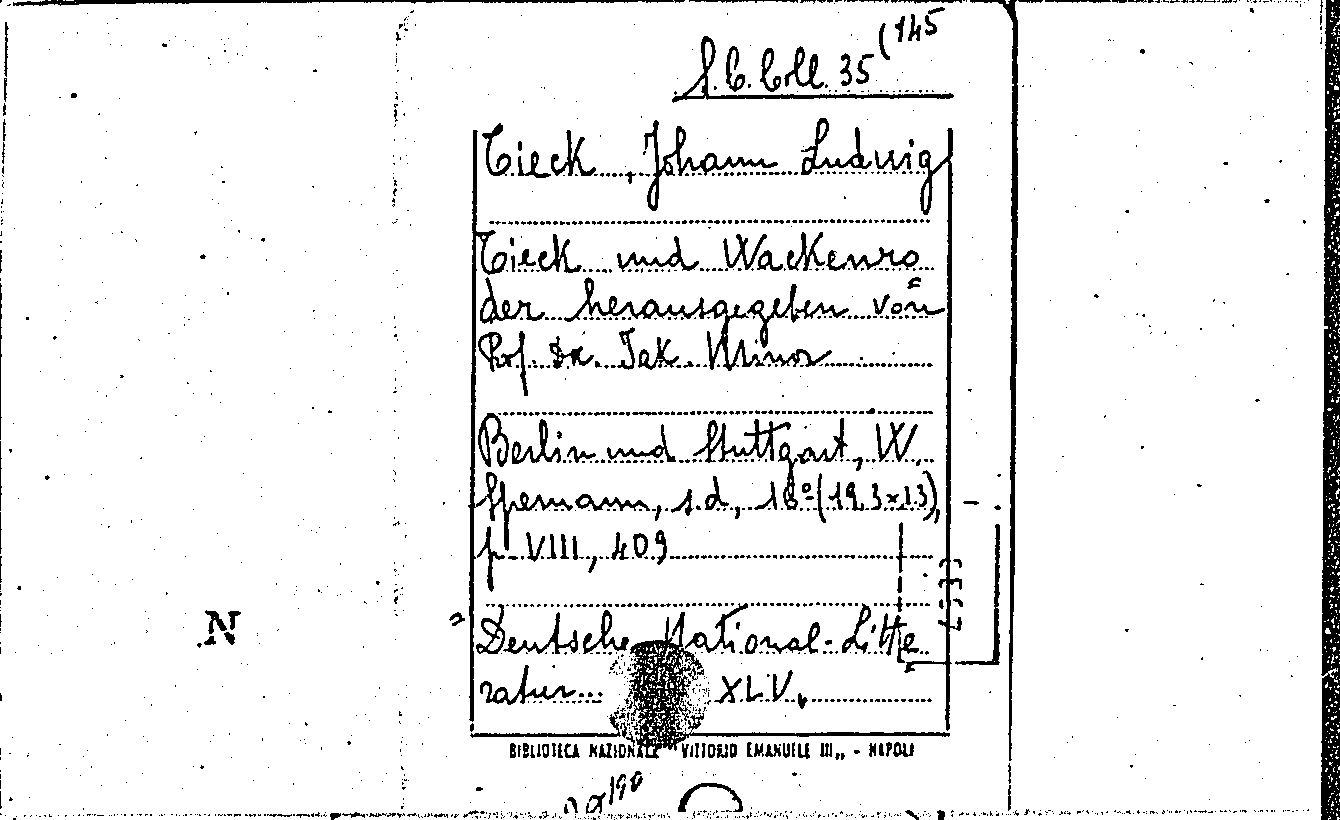 S.C. Coll. 35 (145
Tieck, Johann Ludwig
Tieck und Wackenro
der herausgegeben von
Prof. Dr. Jak. Minor
Berlin und Stuttgart, W.
Spemann, s.d, 16º (19,3×13),
p. VIII, 409
Deutsche National-Litte
ratur... XLV.
N
BIBLIOTECA NAZIONALE "VITTORIO EMANUELE III„ - NAPOLI